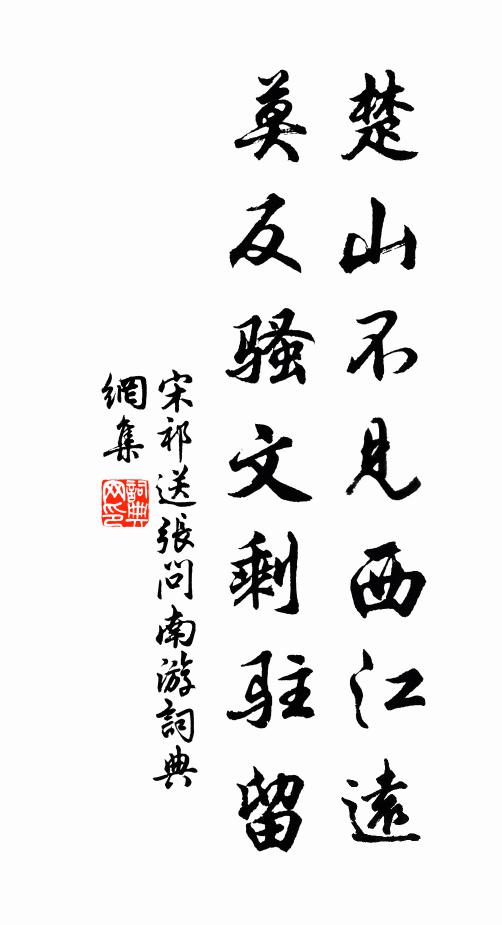 楚山不見西江遠
莫反騷文剩駐留
宋祁送張問南游詞典
網集
詞典
网印